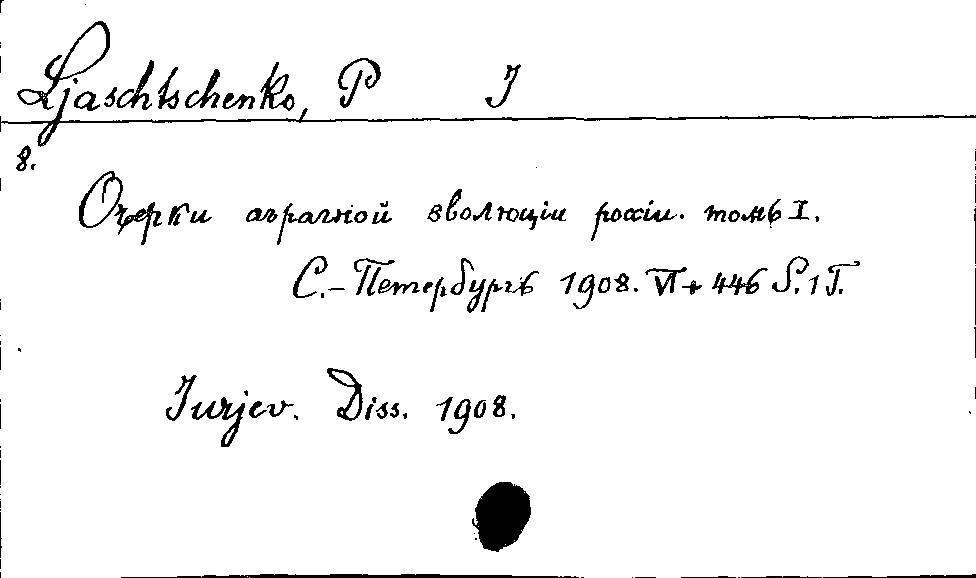 Ljaschtschenko, P J
8.
Очерки аграрной эволюціи россіи. томъ I.
С.-Петербургъ 1908. VI + 446 S. 1 T.
Jurjev. Diss. 1908.